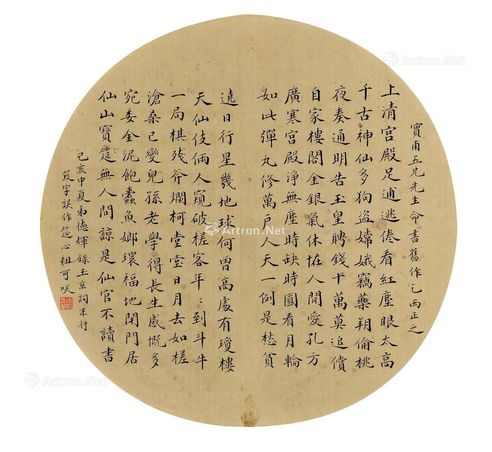 賓甫五兄先生命書舊作乞兩正之
上清宮殿足逋逃倦看紅塵眼太高
千古神仙多狗盜嫦娥竊藥朔偷桃
夜奏通明告玉皇聘錢十萬莫追償
自家樓閣金銀氣休恠人間愛孔方
廣寒宮殿淨無塵時缺時圓看月輪
如此彈丸修萬戶人天一例是愁貧
遶日行星幾地球何曾高處有瓊樓
天仙伎倆人窺破槎客年〻到斗牛
一局棋殘斧爛柯堂堂日月去如梭
滄桑已變兒孫老學得長生感慨多
宛委金泥飽蠹魚嫏環福地閉門居
仙山寶筵無人問諒是仙官不讀書
己亥中夏弟德輝錄玉京詞末行
笈字誤作筵心粗可咲